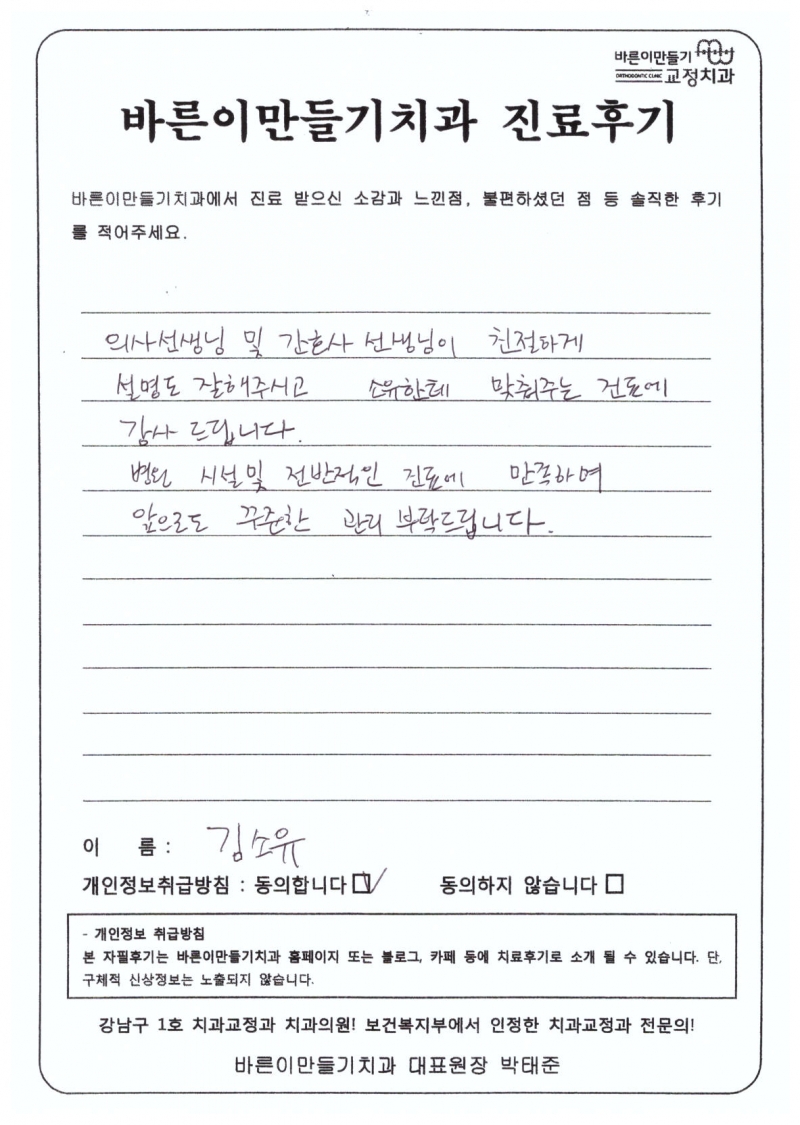 바른이만들기
ORTHODONTIC CLINIC 교정치과
바른이만들기치과 진료후기
바른이만들기치과에서 진료 받으신 소감과 느낀점, 불편하셨던 점 등 솔직한 후기
를 적어주세요.
의사선생님 및 간호사 선생님이 친절하게
설명도 잘해주시고 소유한테 맞춰주는 진료에
감사 드립니다.
병원 시설및 전반적인 진료에 만족하며
앞으로도 꾸준한 관리 부탁드립니다.
이 름 : 김소유
개인정보취급방침 : 동의합니다 동의하지 않습니다
- 개인정보 취급방침
본 자필후기는 바른이만들기치과 홈페이지 또는 블로그, 카페 등에 치료후기로 소개 될 수 있습니다. 단,
구체적 신상정보는 노출되지 않습니다.
강남구 1호 치과교정과 치과의원! 보건복지부에서 인정한 치과교정과 전문의!
바른이만들기치과 대표원장 박태준